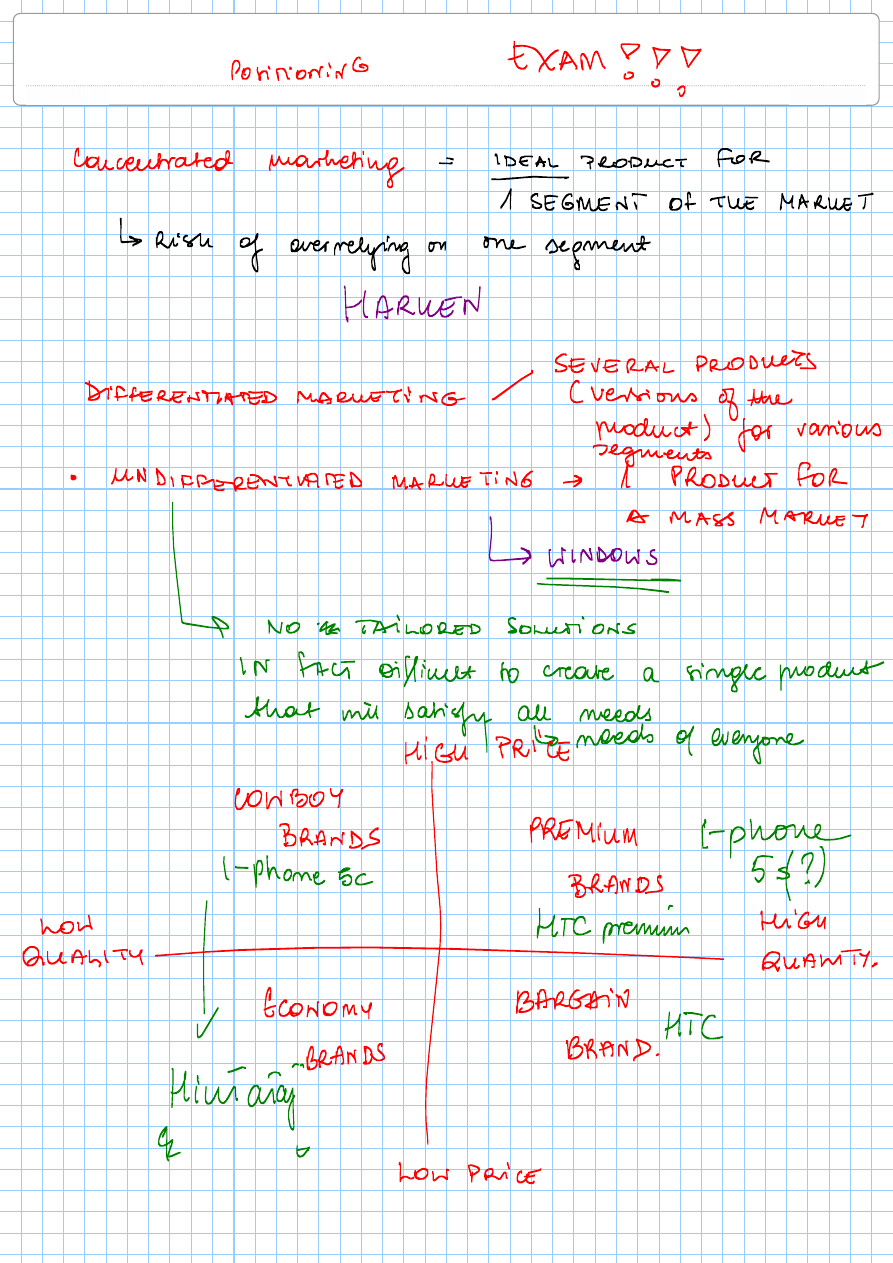 POSITIONING
EXAM!!!
Concentrated marketing = IDEAL PRODUCT FOR
1 SEGMENT OF THE MARKET
↳ Risk of overrelying on one segment
HARKEN
DIFFERENTIATED MARKETING / SEVERAL PRODUCTS
(versions of the
product) for various
segments
• UNDIFFERENTIATED MARKETING → 1 PRODUCT FOR
A MASS MARKET
↳ WINDOWS
NO TAILORED SOLUTIONS
IN FACT difficult to create a single product
that will satisfy all needs
↳ needs of everyone
HIGH PRICE
COWBOY
BRANDS
I-phone 5c
PREMIUM
BRANDS
HTC premium
I-phone
5s(?)
LOW
QUALITY
HIGH
QUALITY.
ECONOMY
BRANDS
BARGAIN
BRAND.
HTC
LOW PRICE